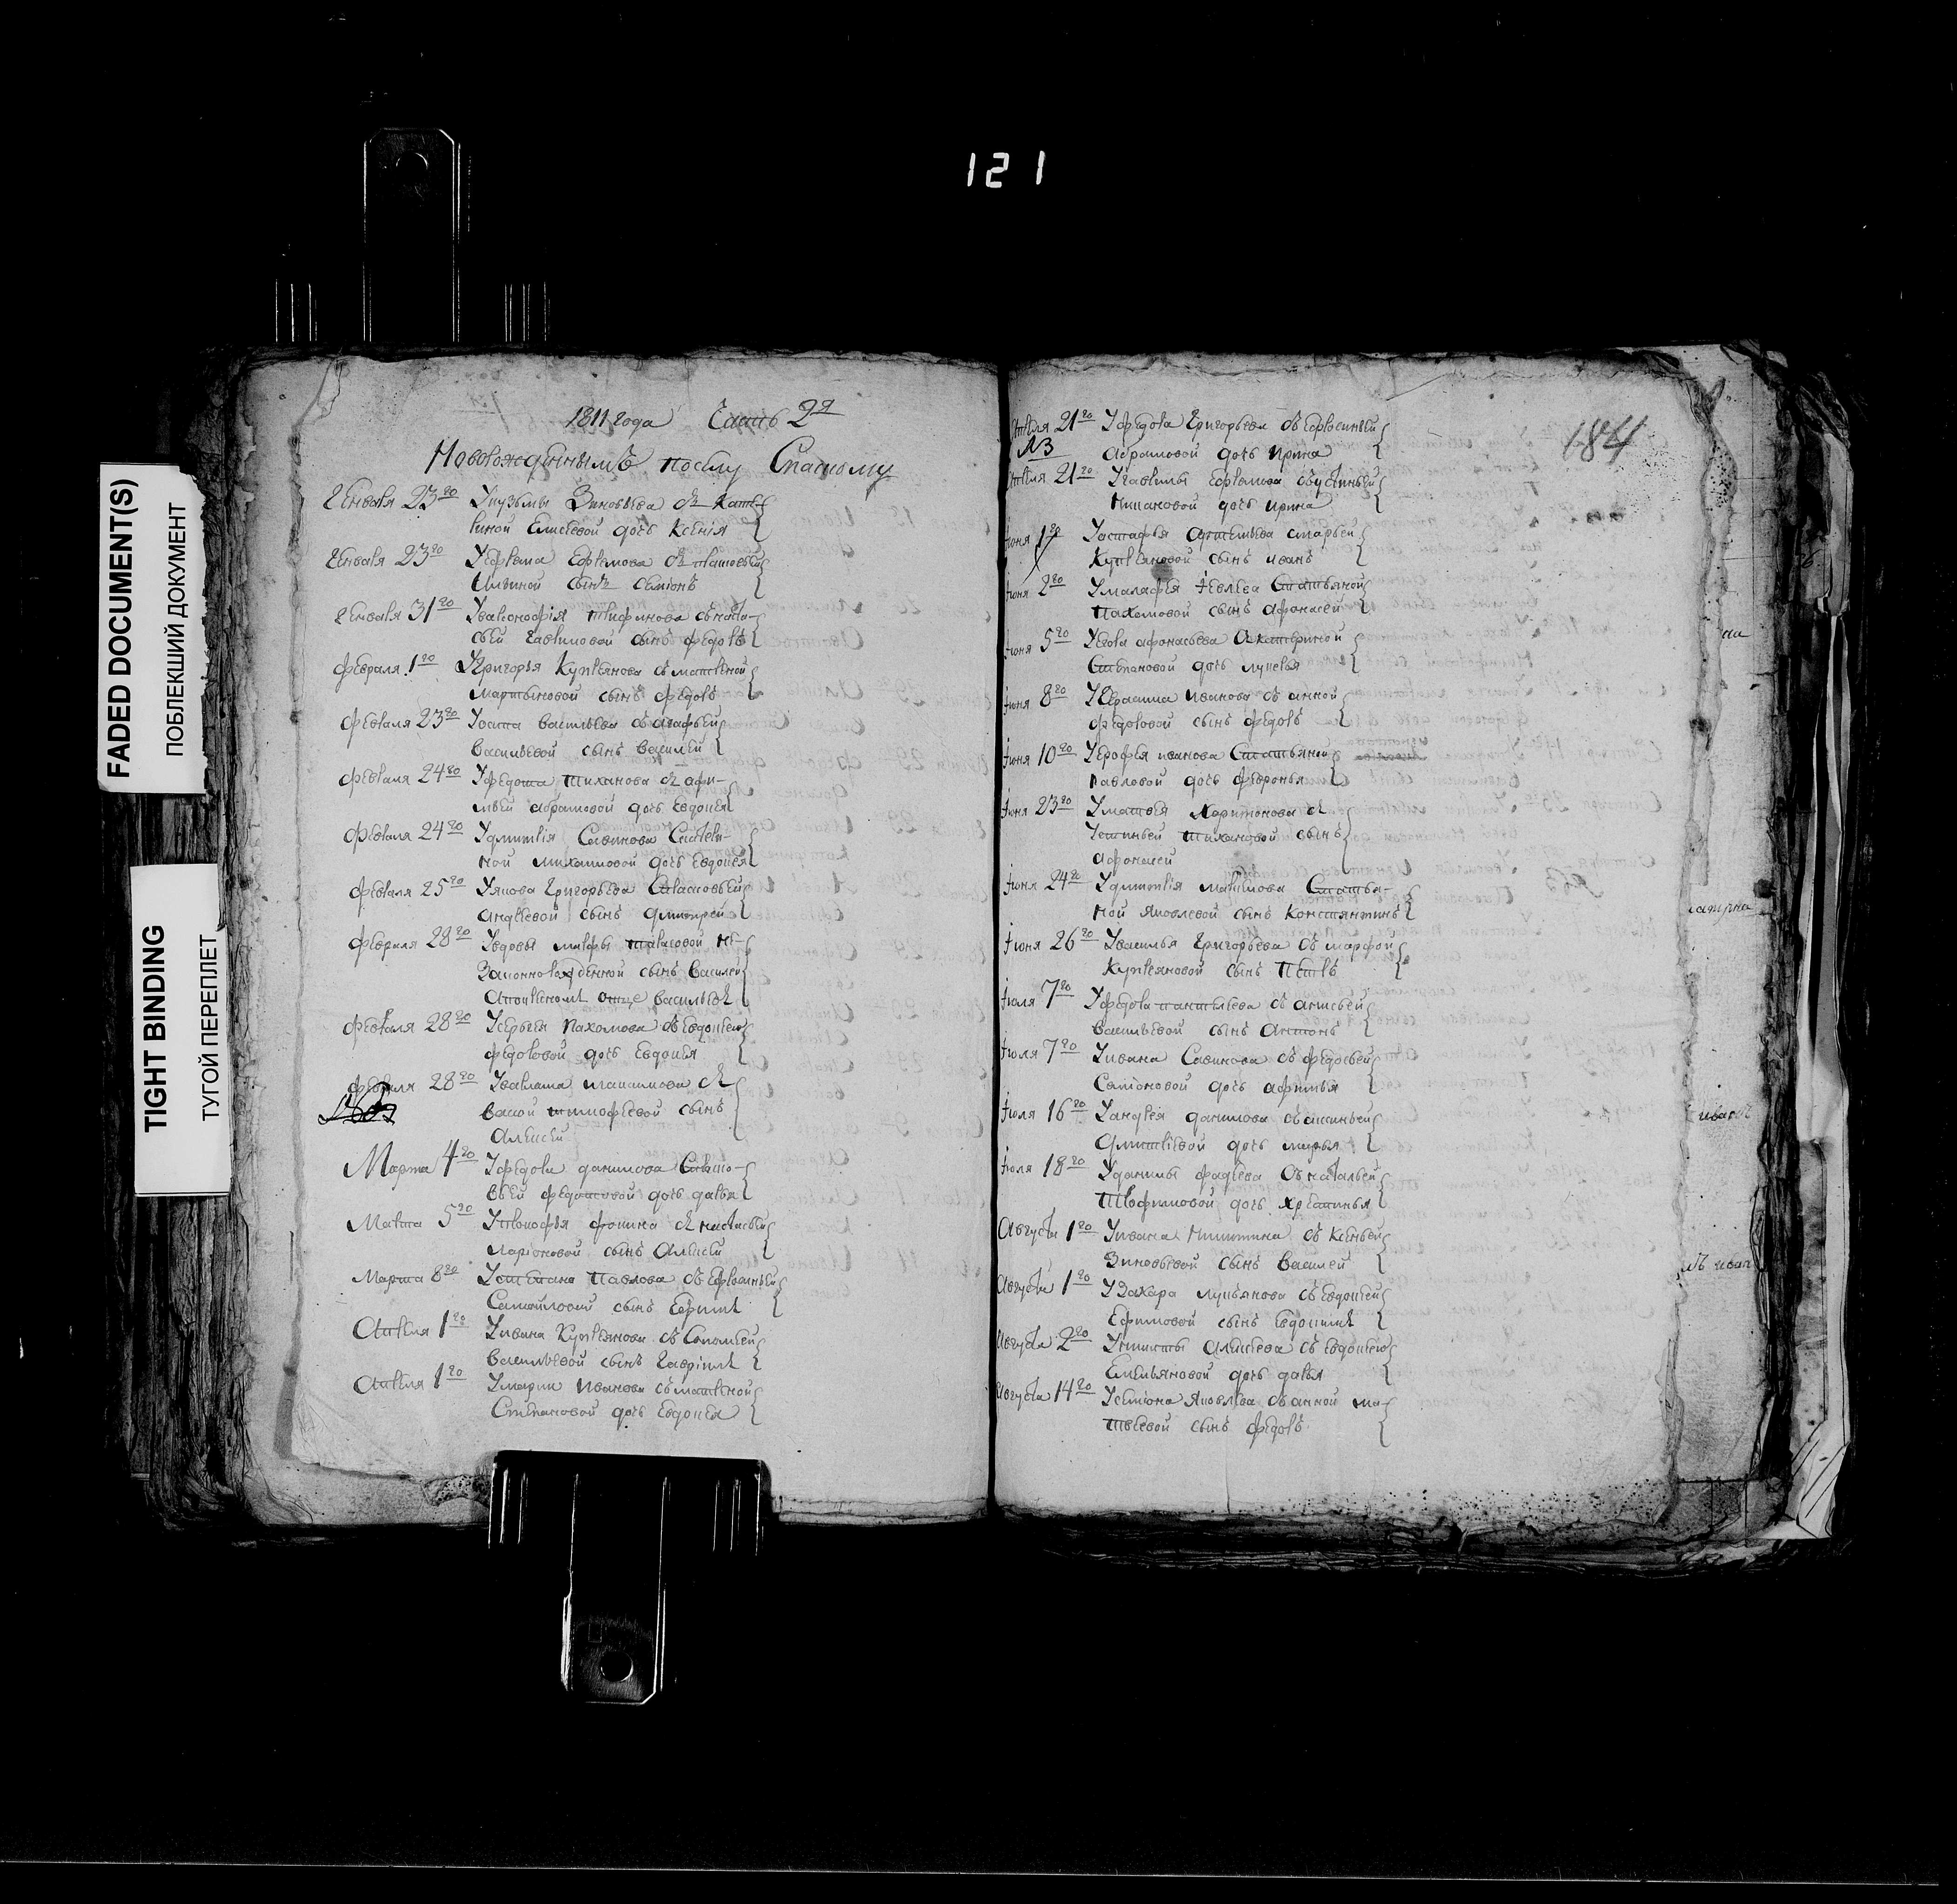 121
FADED DOCUMENT(S)
ПОБЛЕКШИЙ ДОКУМЕНТ
TIGHT BINDING
ТУГОЙ ПЕРЕПЛЕТ
1811 года Часть 2я
Новорожденнымъ поселу Спаскому
Генваря 23го Укузьмы Зиновьева съ Кате-
риной Елисеевой дочь Ксенія
Генваря 23го Уефрема Ефремова съ
Ильиной сынъ Семіонъ
Генваря 31го
Гавриловой сынъ Федоръ
Февраля 1го Угригорья Куприянова съ матреной
Мартыновой сынъ Федоръ
Февраля 23го Уосипа Васильева съ агафьей
Васильевой сынъ Василей
Февраля 24го Уфедота Тиханова съ афи-
мьей абрамовой дочь Евдокея
Февраля 24го Удмитрія Савинова
ной михаиловой дочь Евдокея
Февраля 25го Уякова Григорьева
андреевой сынъ дмитрей
Февраля 28го Увдовы марфы тарасовой не-
законнорожденной сынъ Василей
Февраля 28го Усергея Пахомова съ Евдокеей
Федоровой дочь Евдокея
Февраля 28го
тимофеевой сынъ
Алексей
Марта 4го Уфедора данилова
федотовой дочь дарья
Марта 5го Упрокофья фомина съ настасьей
Ларіоновой сынъ Алексей
Марта 8го Устепана Павлова съ Ефросиньей
Самойловой сынъ Ефимъ
Апреля 1го Уивана Куприянова съ
Васильевой сынъ Гаврiилъ
Апреля 1го Иванова съ матреной
Степановой дочь Евдокея
184
Апреля 21го Уфедора Григорьева съ Ефросиньей
N3 абрамовой дочь Ирина
Апреля 21го Угаврилы Ефремова съустиньей
дочь Ирина
Іюня 1го Уостафья
Куприяновой сынъ иванъ
Іюня 2го Умалафея Іевлева Статьяной
Пахомовой сынъ афонасей
Іюня 5го афонасьева Скатериной
Степановой дочь лукерья
Іюня 8го Угерасима Иванова съ анной
Федоровой сынъ Федоръ
Іюня 10го Уерофея иванова Статьяной
Павловой дочь Февронья
Іюня 23го Уматвея Харитонова съ
Устиньей Тихановой сынъ
афонасей
Іюня 24го Удмитрія Статья-
ной Яковлевой сынъ Константинъ
Іюня 26го Увасилья Григорьева съ марфой
Куприяновой сынъ Петръ
Іюля 7го Уфедора пантелеева съ анисьей
Васильевой сынъ Антонъ
Іюля 7го Уивана Савинова съ федосьей
Семіоновой дочь афимья
Іюля 16го Уандрея данилова съаксиньей
Дмитріевой дочь марья
Іюля 18го Уданилы фадеева съ натальей
Трофимовой дочь Хрестинья
Августа 1го Уивана Никитина съ Ксеньей
Зиновьевой сынъ Василей
Августа 1го Узахара лукьянова съ Евдокеей
Ефимовой сынъ Евдокимъ
Августа 2го Уникиты Алексеева съ Евдокеей
Емельяновой дочь дарья
Августа 14го Усеміона Яковлева съ анной ма-
твеевой сынъ Федоръ